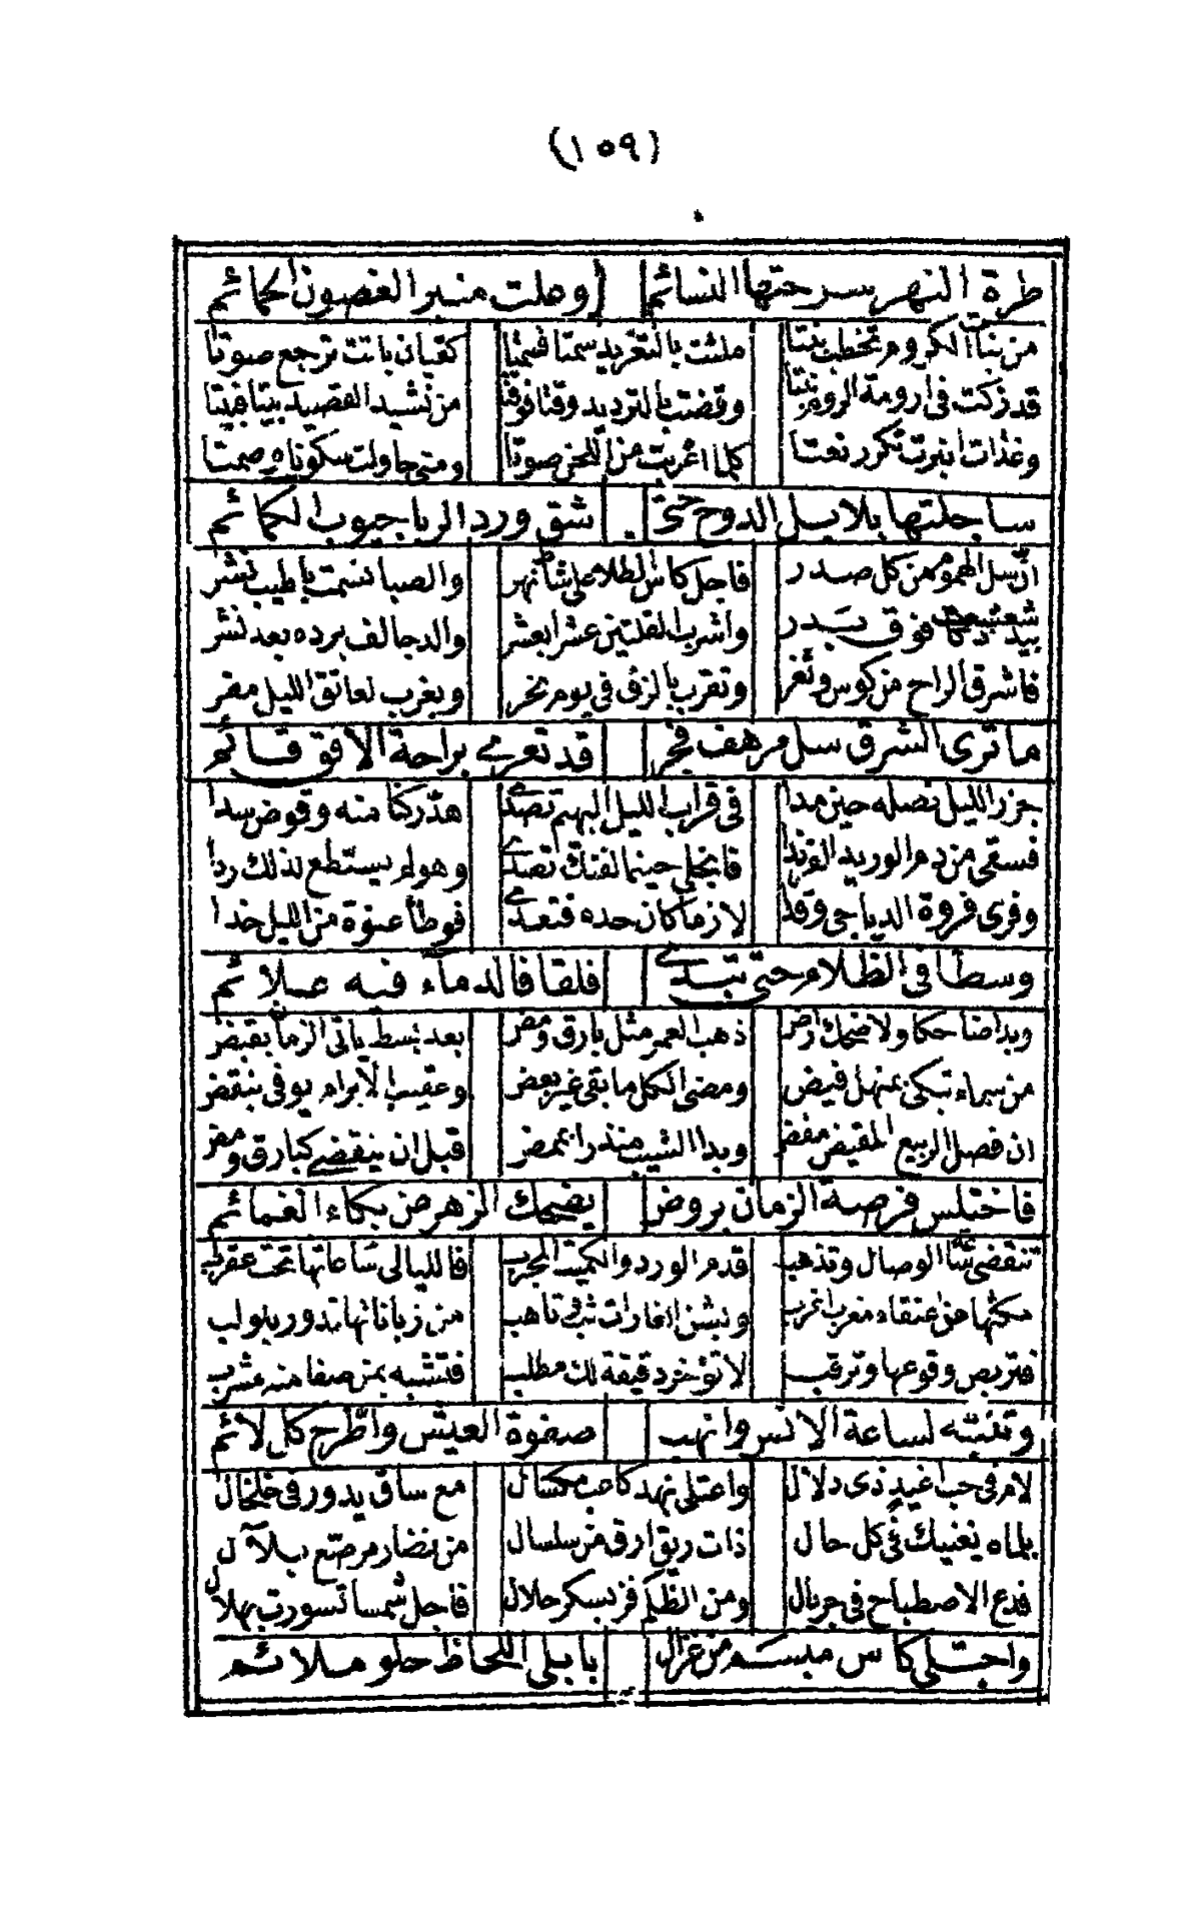 (١٥٩)
طرة النهر سرحتها النسائم وعلت منبر الغصون الحمائم
من بنات الكروم تخطب بنتا ملئت بالتغريد سمتا فسمتا كقيان باتت ترجع صوتا
قد زكت في ارومة الروم نبتا وقضت بالترديد وقتا فوقتا من نشيد القصيد بيتا فبيتا
وغذات انبرت تكرر نعتا كلما اغربت من اللحن صوتا ومتى حاولت سكوتا وصمتا
ساجلتها بلابل الدوح حتى شق ورد الربا جيوب الكمائم
ان تسل الهموم من كل صدر فاجل كاس الطلا على شاطئ نهر والصبا نسمت باطيب نشر
فوق بدر واشرب القلتين عشرا بعشر والدجا لف برده بعد نشر
فاشرق الراح من كوس وثغر وتقرب بالزق في يوم نحر وبغرب لعاتق الليل مفر
ما ترى الشرق سل مرهف فجر قد تعرى براحة الافق قائم
جزر الليل نصله حين مدا في قراب الليل البهيم تصدى هد ركنا منه وقوض سدا
فسقى من دم الوريد الفرندا فانجلى حينما لفتك تصدى وهو لم يستطع لذلك ردا
وفرى فروة الدياجي وقدا لازما كان حده فتعدى فوطأ عنوة من الليل خدا
وسطا في الظلام حتى تبدى فلقا فالدماء فيه علائم
وبدا ضاحكا ولا ضحك ارض ذهب العمر مثل بارق ومض بعد بسط ياتي الزمان بقبض
من سماء تبكي بمنهل فيض ومضى الكل ما بقى غير بعض وعقيب الابرام يوفى بنقض
ان فصل الربيع المقيض مفض وبدا الشيب منذرا بمض قبل ان ينقضي كبارق ومض
فاختلس فرصة الزمان بروض يضحك الزهر من بكاء الغمائم
تنقضي الوصال وتذهب قدم الورد والكميت المجرب فالليالي ساعاتها تحت عقرب
عنقاء مغرب وبشن الغارات تاهب من زباناتها تدور بلولب
فتربص وقوعها وترقب لا تؤخر دقيقة لك مطلب فتشبه بمن صفا منه مشرب
وتنبه لساعة الانس وانهب صفوة العيش واطرح كل لائم
لام في حب اغيد ذي دلال واعتلى نهد كاعب مكسال مع ساق يدور في خلخال
بلماه يغنيك في كل حال ذات ريق ارق من سلسال من نضار مرصع بلآل
فدع الاصطباح في جريال ومن الظلم فز بسكر حلال فاجل شمسا تسورت بهلال
واجتلي كاس مبسم من غزال بابلي اللحاظ حلو ملائم